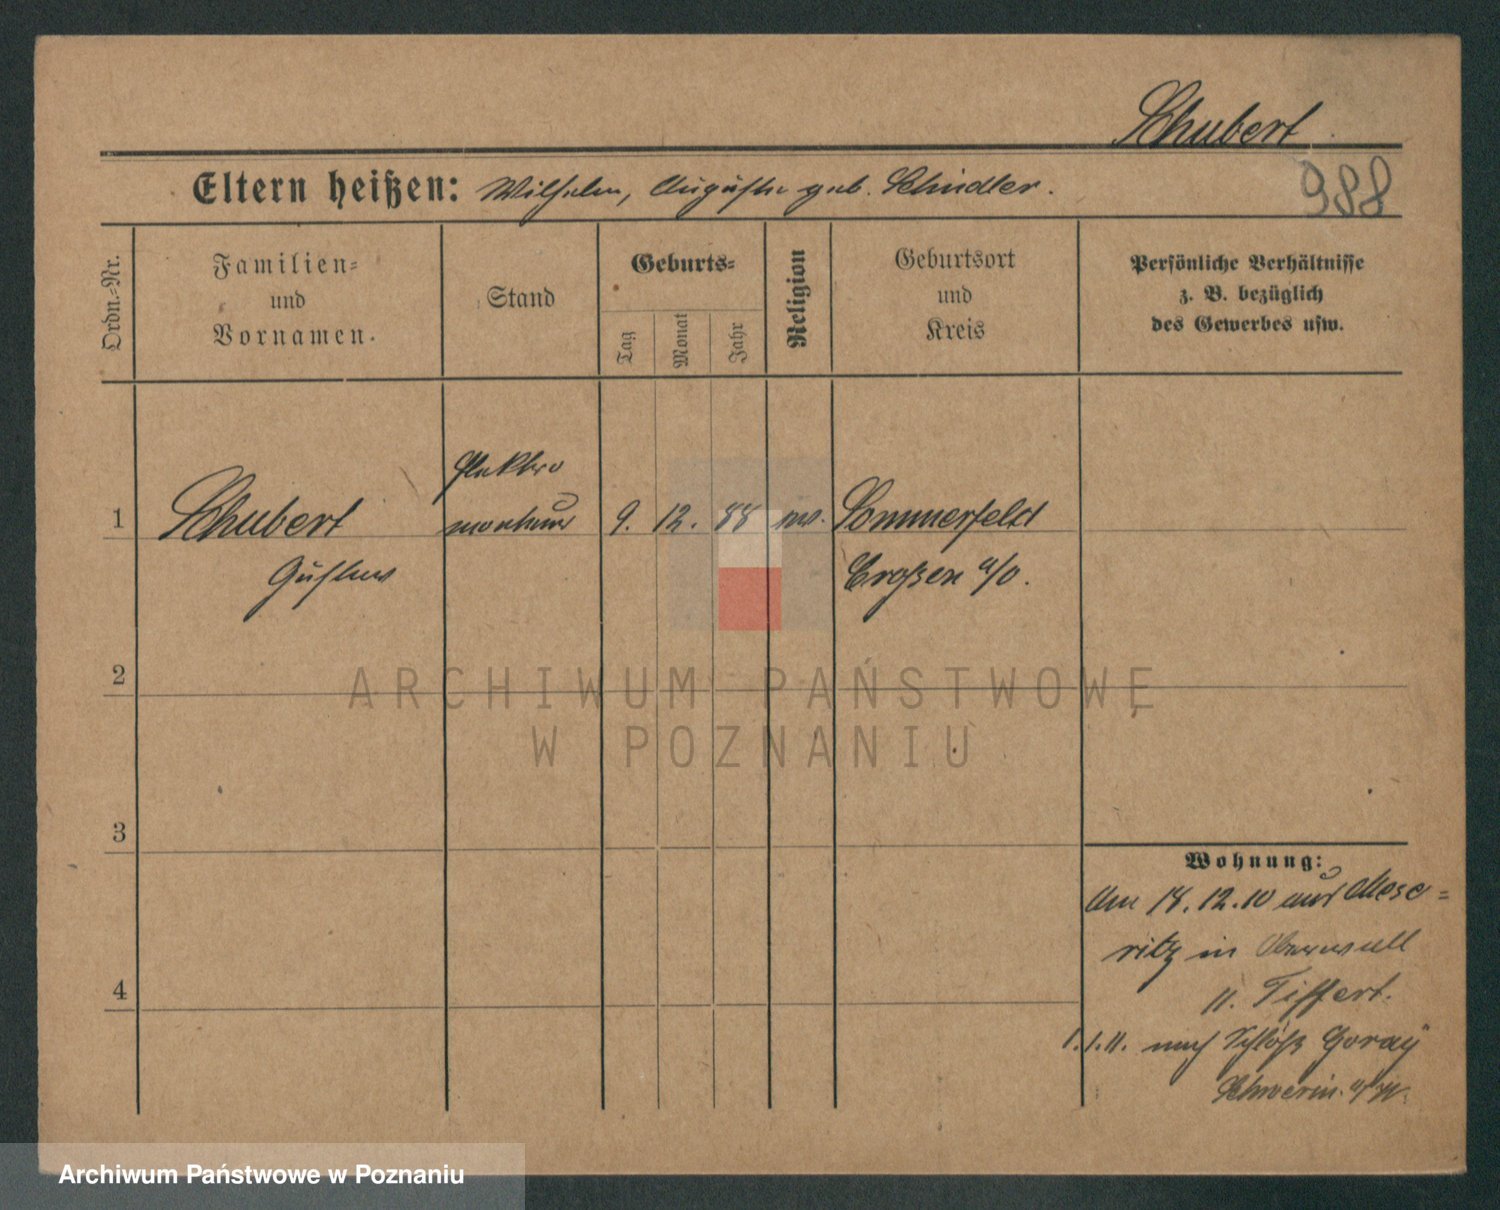 Schubert
988
Eltern heißen: Wilhelm, Auguste geb. Schindler.
Ordn.-Nr.
Familien-
und
Vornamen.
Stand
Geburts-
Tag
Monat
Jahr
Religion
Geburtsort
und
Kreis
Persönliche Verhältnisse
z. B. bezüglich
des Gewerbes usw.
1
Schubert
Gustav
Elektro
monteur
9. 12. 88
ev.
Sommerfeld
Croßen a/O.
2
3
4
Wohnung:
Am 18.12.10 aus Mese=
ritz in
Tiffert.
1.1.11. nach Schloß Goray
Schwerin a/W.
ARCHIWUM PAŃSTWOWE
W POZNANIU
Archiwum Państwowe w Poznaniu